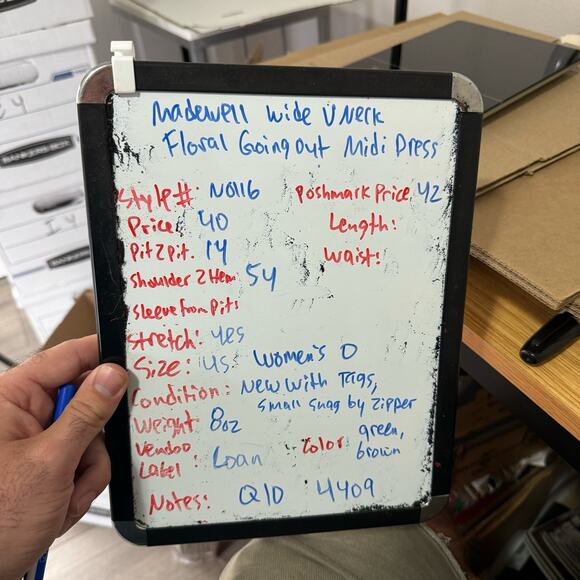 Madewell Wide V Neck
Floral Going out Midi Dress
Style#: NO116
Poshmark Price: 42
Price: 40
Length:
Pit2Pit: 14
Waist:
Shoulder 2 Hem: 54
Sleeve from Pit:
Stretch: yes
Size: US Women's 0
Condition: New With Tags,
Small Snag by Zipper
Weight: 8oz
Color: green,
brown
Vendoo
Label: Loan
Notes: Q10 4409